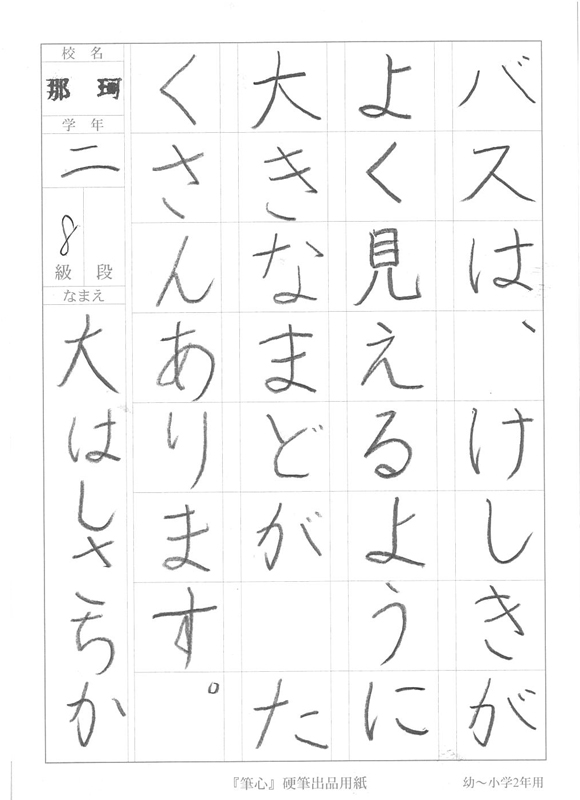 バスは、けしきが
よく見えるように
大きなまどが　た
くさんあります。
校名
那珂
学年
二
8
級 段
なまえ
大はしさちか
『筆心』硬筆出品用紙
幼〜小学2年用